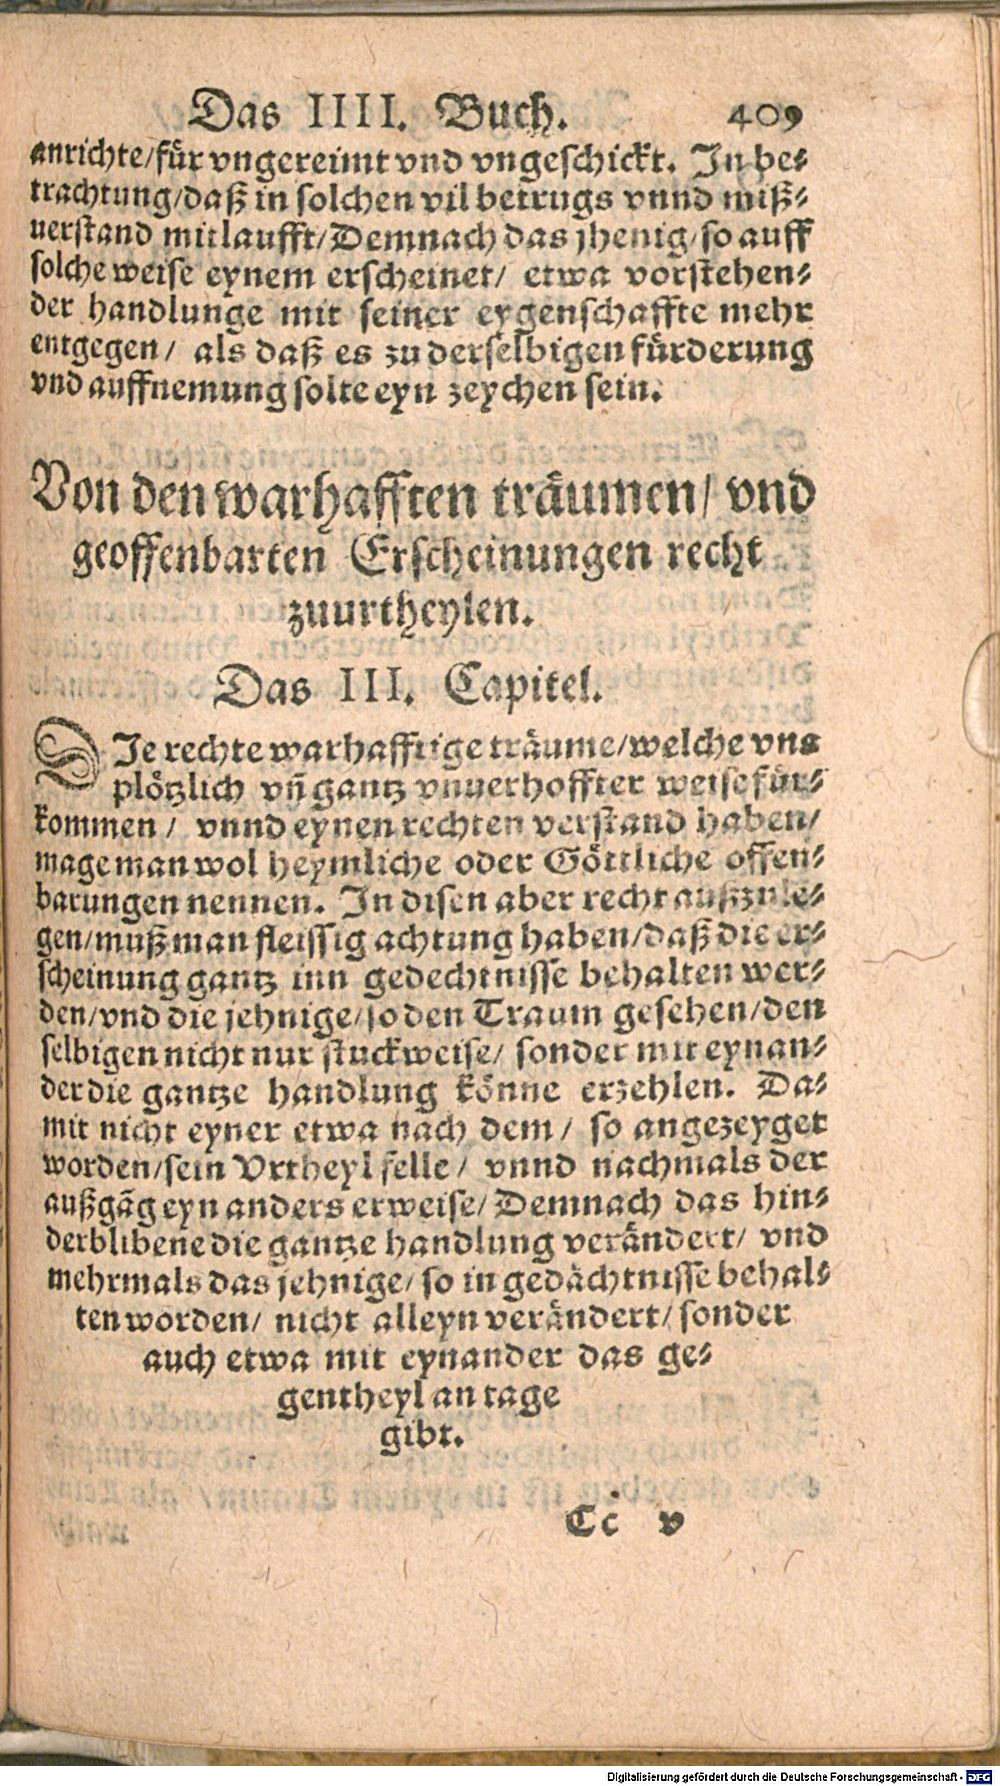 Das IIII. Buch. 409
anrichte/für vngereimt vnd vngeschickt. In be⸗
trachtung/daß in solchen vil betrugs vnnd miß⸗
uerstand mitlaufft/Demnach das jhenig/so auff
solche weise eynem erscheinet/ etwa vorstehen⸗
der handlunge mit seiner eygenschaffte mehr
entgegen/ als daß es zu derselbigen fürderung
vnd auffnemung solte eyn zeychen sein.
Von den warhafften träumen/ vnd
geoffenbarten Erscheinungen recht
zuurtheylen.
Das III. Capitel.
DIe rechte warhafftige träume/welche vns
plötzlich vñ gantz vnuerhoffter weise für⸗
kommen/ vnnd eynen rechten verstand haben/
mage man wol heymliche oder Göttliche offen⸗
barungen nennen. In disen aber recht außzule⸗
gen/muß man fleissig achtung haben/daß die er⸗
scheinung gantz inn gedechtnisse behalten wer⸗
den/vnd die jehnige/so den Traum gesehen/den
selbigen nicht nur stuckweise/ sonder mit eynan⸗
der die gantze handlung könne erzehlen. Da⸗
mit nicht eyner etwa nach dem/ so angezeyget
worden/sein Vrtheyl felle/ vnnd nachmals der
außgãg eyn anders erweise/Demnach das hin⸗
derblibene die gantze handlung verändert/ vnd
mehrmals das jehnige/ so in gedächtnisse behal⸗
ten worden/ nicht alleyn verändert/ sonder
auch etwa mit eynander das ge⸗
gentheyl an tage
gibt.
Cc v
Digitalisierung gefördert durch die Deutsche Forschungsgemeinschaft - DFG